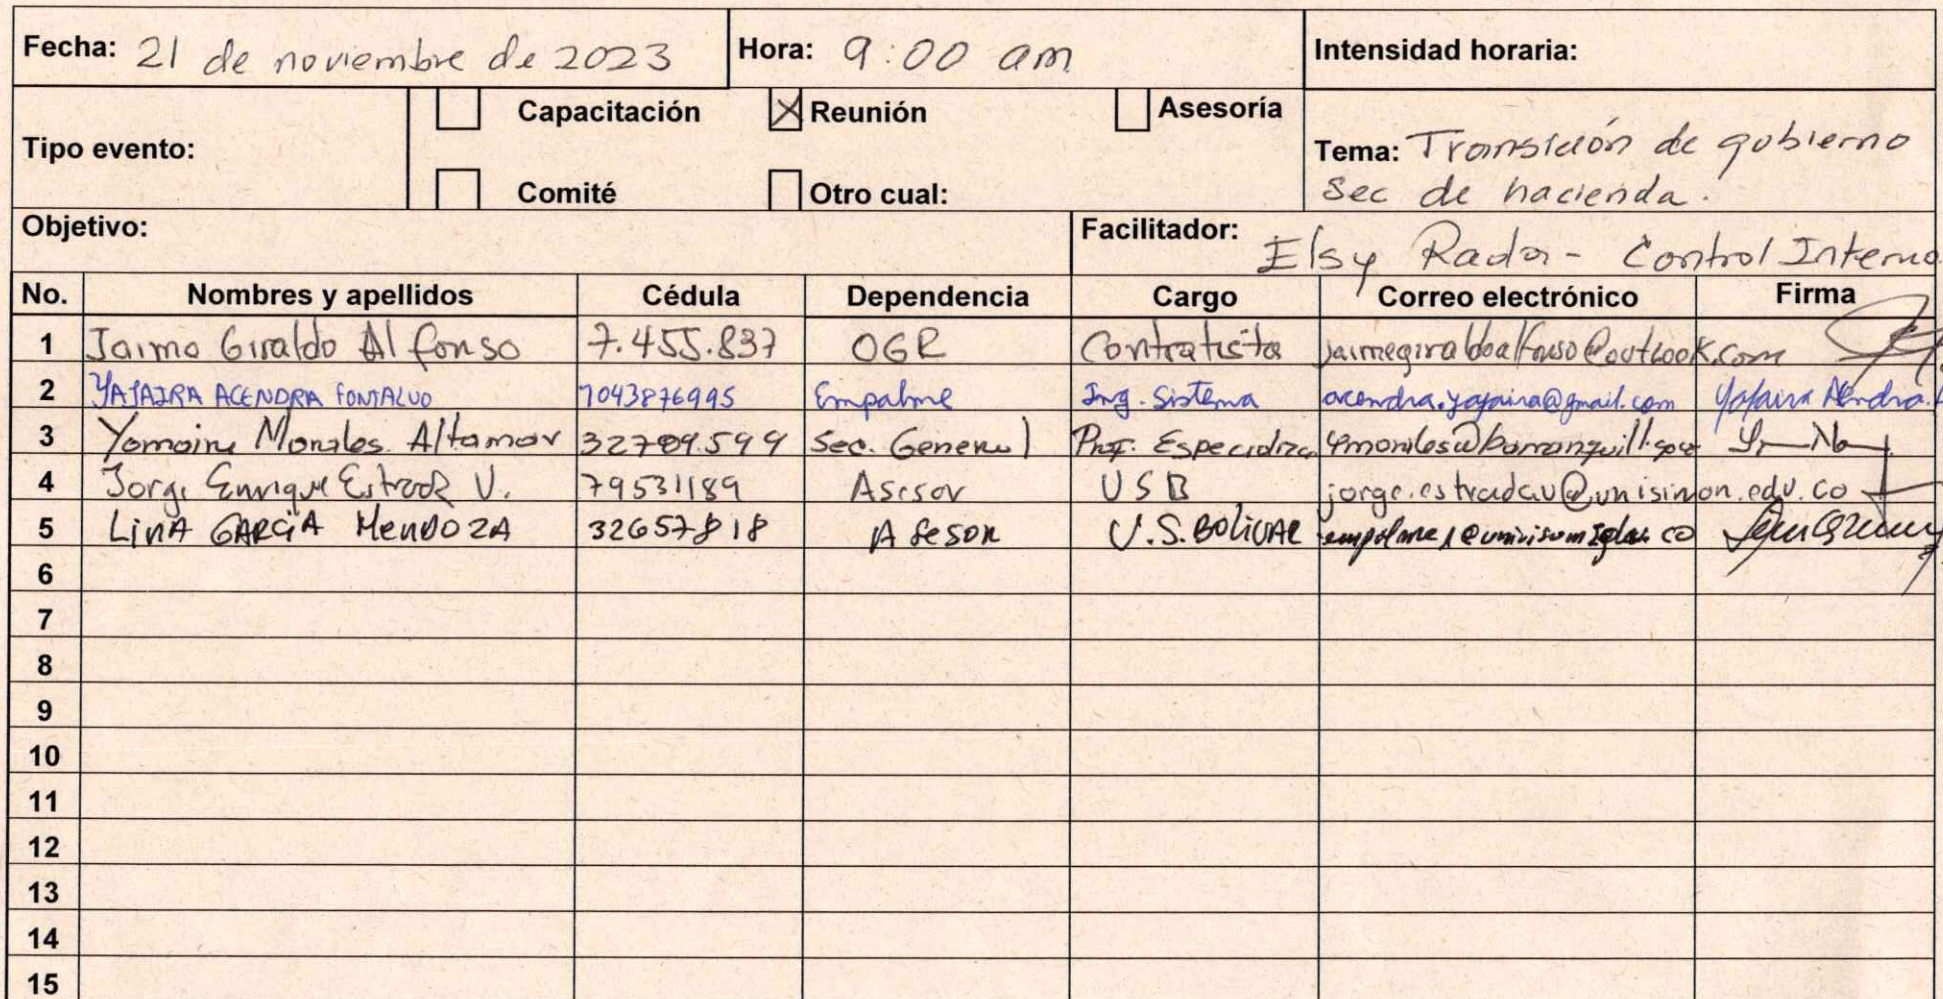 Fecha: 21 de noviembre de 2023 Hora: 9:00 am Intensidad horaria:
Tipo evento: Capacitación Reunión Asesoría
Comité Otro cual:
Tema: Transición de gobierno
Sec de hacienda.
Objetivo: Facilitador: Elsy Rada - Control Interno
No. Nombres y apellidos Cédula Dependencia Cargo Correo electrónico Firma
1 Jaime Giraldo Alfonso 7.455.837 OGR Contratista jaimegiraldoalfonso@outlook.com
2 YAJAIRA ACENDRA FONTALVO 1043876995 Empalme Ing. Sistema acendra.yajaira@gmail.com
3 Morales Altamar Sec. General Prof.
4 Jorge Enrique Estrada V. 79531189 Asesor USB jorge.estradav@unisimon.edu.co
5 LINA GARCíA MENDOZA 32657818 Asesor U.S.BOLIVAR
6
7
8
9
10
11
12
13
14
15